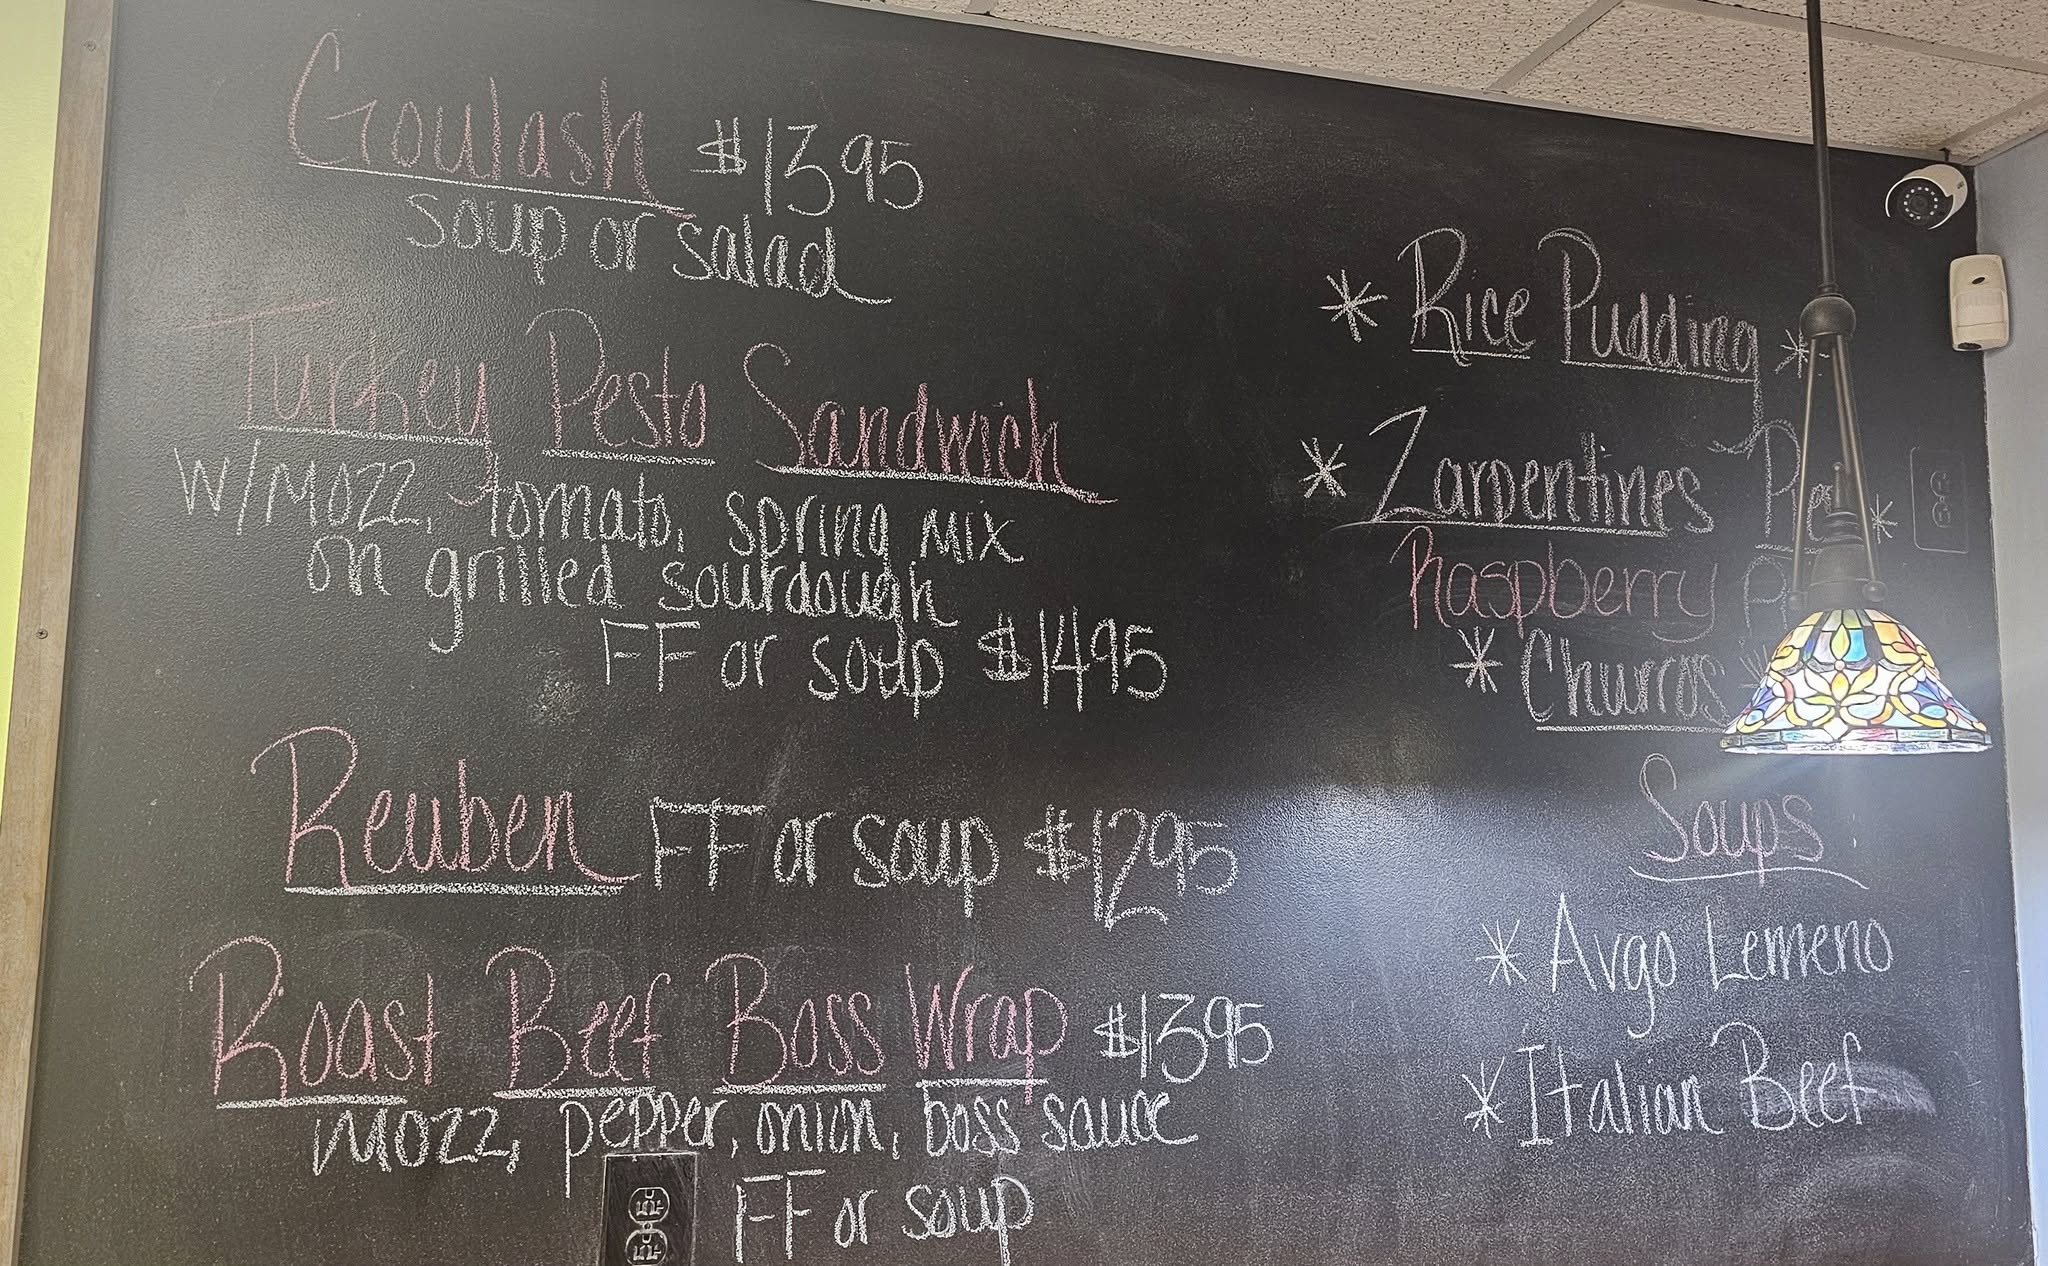 Goulash $13.95
soup or salad
Turkey Pesto Sandwich
w/mozz, tomato, spring mix
on grilled sourdough
FF or soup $14.95
Reuben FF or soup $12.95
Roast Beef Boss Wrap $13.95
mozz, pepper, onion, boss sauce
FF or soup
* Rice Pudding *
* Zarpentines *
Raspberry
* Churros *
Soups
* Avgo Lemeno
* Italian Beef